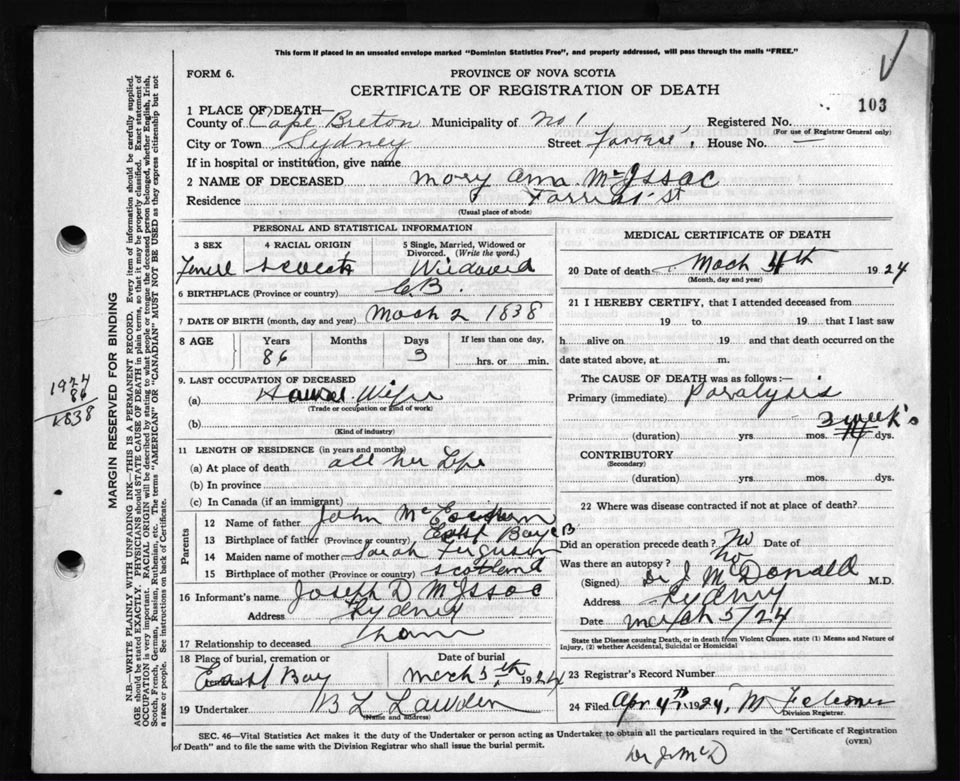 This form if placed in an unsealed envelope marked "Dominion Statistics Free", and properly addressed, will pass through the mails "FREE."
FORM 6.
PROVINCE OF NOVA SCOTIA
CERTIFICATE OF REGISTRATION OF DEATH
103
1 PLACE OF DEATH—
County of Cape Breton Municipality of No 1 Registered No.
(For use of Registrar General only)
City or Town Sydney Street House No. —
If in hospital or institution, give name
2 NAME OF DECEASED Mary Ann McIssac
Residence St
(Usual place of abode)
PERSONAL AND STATISTICAL INFORMATION
3 SEX 4 RACIAL ORIGIN 5 Single, Married, Widowed or Divorced. (Write the word.)
Widowed
6 BIRTHPLACE (Province or country) C.B.
7 DATE OF BIRTH (month, day and year) Mach 2 1838
8 AGE Years Months Days If less than one day,
86 3 hrs. or min.
9. LAST OCCUPATION OF DECEASED
(a) House Wife
(Trade or occupation or kind of work)
(b)
(Kind of industry)
11 LENGTH OF RESIDENCE (in years and months)
(a) At place of death all her Life
(b) In province
(c) In Canada (if an immigrant)
Parents
12 Name of father John
13 Birthplace of father (Province or country) East Bay CB
14 Maiden name of mother Sarah Ferguson
15 Birthplace of mother (Province or country) Scotland
16 Informant's name Joseph D McIssac
Address Sydney
17 Relationship to deceased
18 Place of burial, cremation or Date of burial
East Bay March 5th 1924
19 Undertaker
(Name and address)
MEDICAL CERTIFICATE OF DEATH
20 Date of death Mach 4th 1924
(Month, day and year)
21 I HEREBY CERTIFY, that I attended deceased from
19 to 19 that I last saw
h alive on 19 and that death occurred on the
date stated above, at m.
The CAUSE OF DEATH was as follows:—
Primary (immediate) Paralysis
3 weeks
(duration) yrs. mos. dys.
CONTRIBUTORY
(Secondary)
(duration) yrs. mos. dys.
22 Where was disease contracted if not at place of death?
Did an operation precede death? No Date of
Was there an autopsy? no
(Signed) Dr J McDonald M.D.
Address Sydney
Date March 5/24
State the Disease causing Death, or in death from Violent Causes, state (1) Means and Nature of Injury, (2) whether Accidental, Suicidal or Homicidal
23 Registrar's Record Number
24 Filed Apr 4th 1924, M
Division Registrar.
SEC. 46—Vital Statistics Act makes it the duty of the Undertaker or person acting as Undertaker to obtain all the particulars required in the "Certificate of Registration of Death" and to file the same with the Division Registrar who shall issue the burial permit.
(OVER)
Dr J McD
MARGIN RESERVED FOR BINDING
N.B.—WRITE PLAINLY WITH UNFADING INK—THIS IS A PERMANENT RECORD. Every item of information should be carefully supplied.
AGE should be stated EXACTLY. PHYSICIANS should STATE CAUSE OF DEATH in plain terms, so that it may be properly classified. Exact statement of
OCCUPATION is very important. RACIAL ORIGIN will be described by stating to what people or tongue the deceased person belonged, whether English, Irish,
Scotch, French, German, Russian, Ruthenian, etc. The terms "AMERICAN" or "CANADIAN" MUST NOT BE USED as they express citizenship but not
a race or people. See instructions on back of Certificate.
1924
86
1838